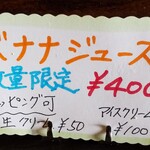 バナナジュース
数量限定 ¥400
ッピング可
生クリーム ¥50
アイスクリーム
¥100